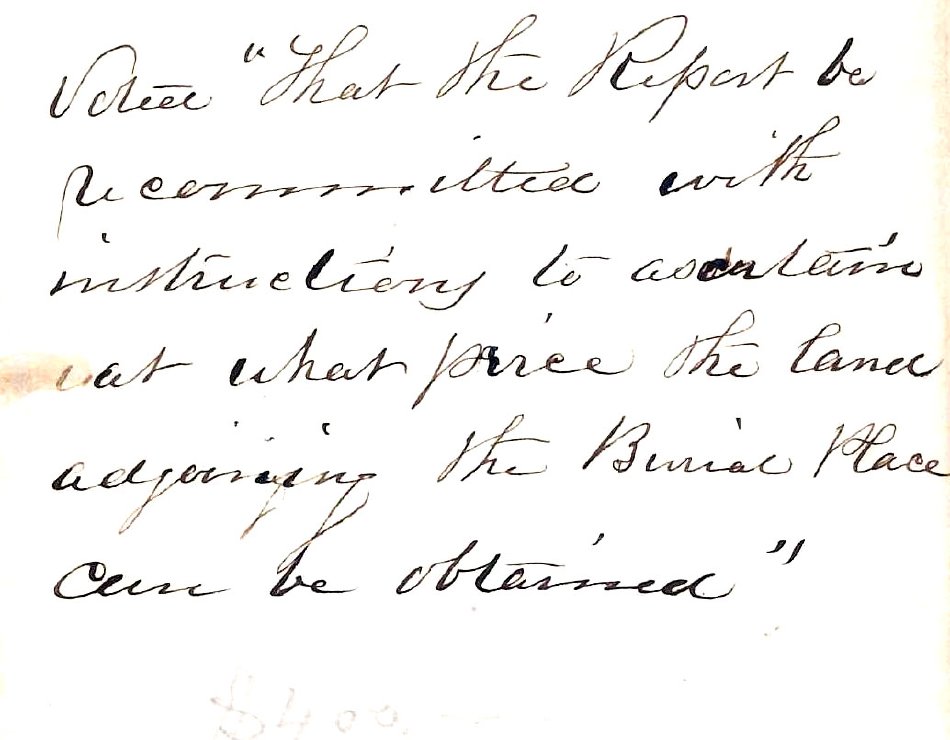 Voted "That the Report be
recommitted with
instructions to ascertain
at what price the land
adjoining the Burial Place
can be obtained"
$400.